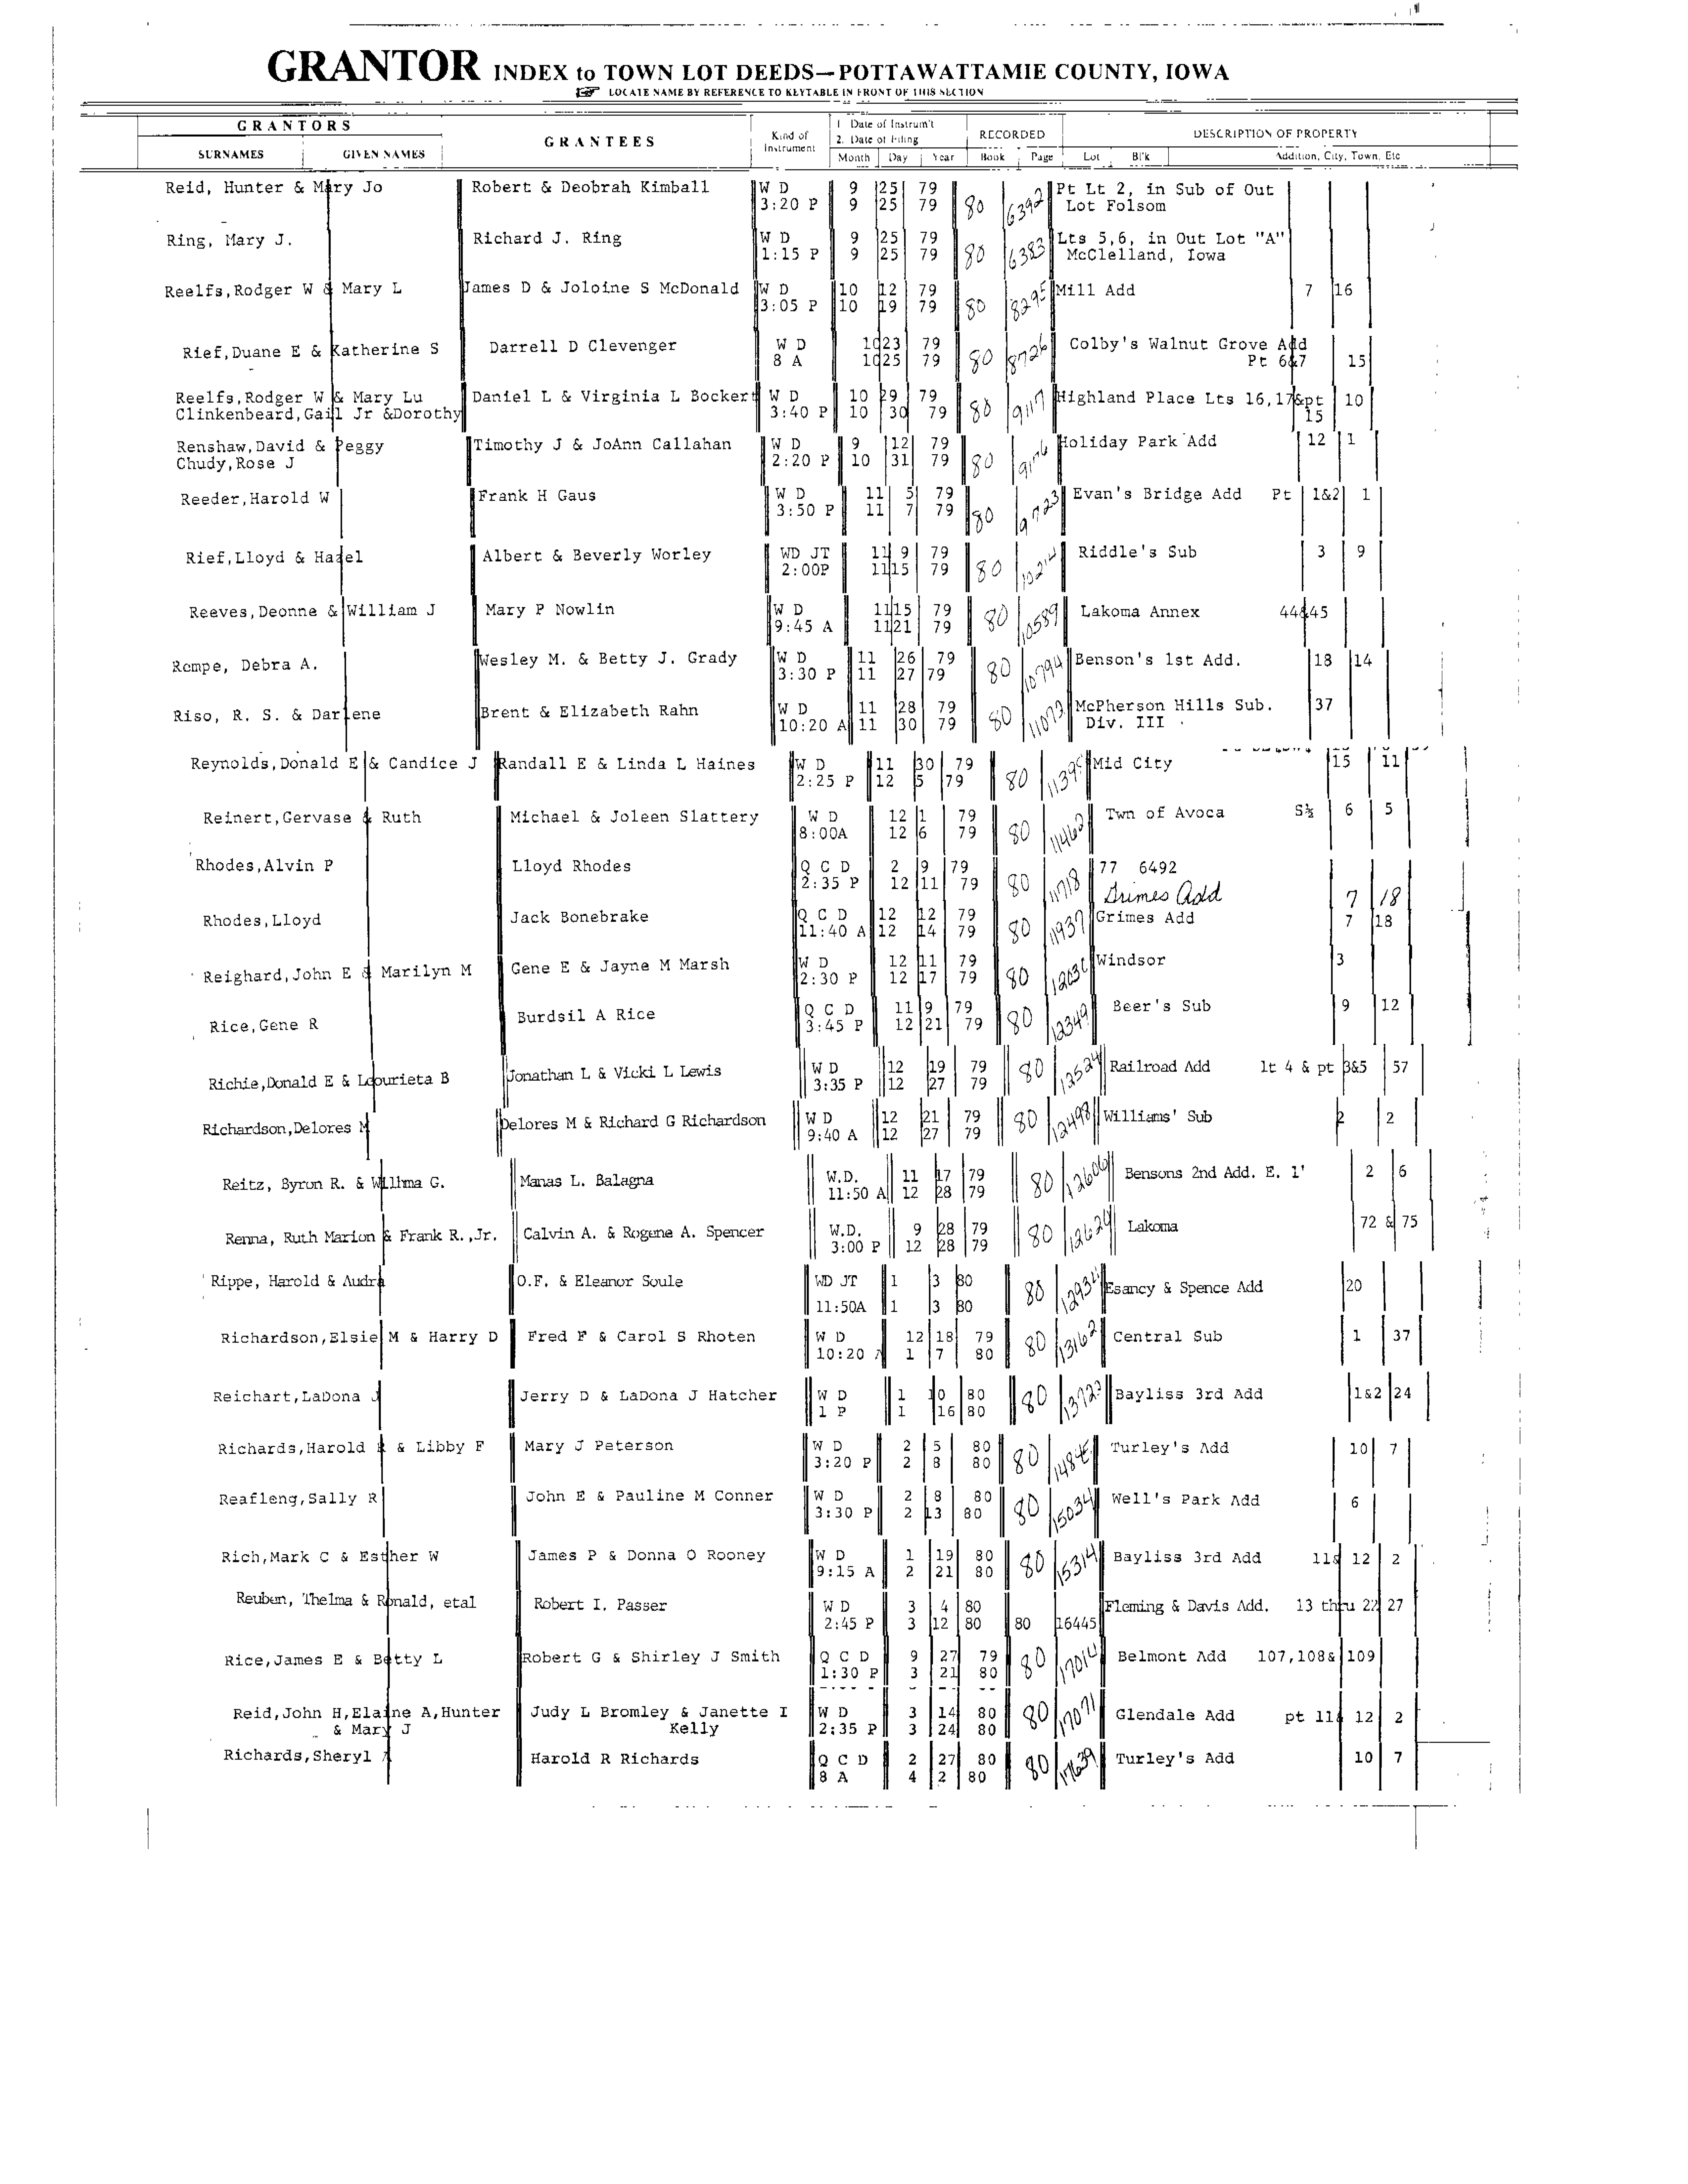 GRANTOR INDEX to TOWN LOT DEEDS—POTTAWATTAMIE COUNTY, IOWA
LOCATE NAME BY REFERENCE TO KEYTABLE IN FRONT OF THIS SECTION
GRANTORS GRANTEES Kind of Instrument 1 Date of Instrum't 2. Date of Filing RECORDED DESCRIPTION OF PROPERTY
SURNAMES GIVEN NAMES Month Day Year Book Page Lot Bl'k Addition, City, Town, Etc
Reid, Hunter & Mary Jo Robert & Deobrah Kimball W D 9 25 79 80 6392 Pt Lt 2, in Sub of Out
3:20 P 9 25 79 Lot Folsom
Ring, Mary J. Richard J. Ring W D 9 25 79 80 6383 Lts 5,6, in Out Lot "A"
1:15 P 9 25 79 McClelland, Iowa
Reelfs,Rodger W & Mary L James D & Joloine S McDonald W D 10 12 79 80 8295 Mill Add 7 16
3:05 P 10 19 79
Rief,Duane E & Katherine S Darrell D Clevenger W D 10 23 79 80 8726 Colby's Walnut Grove Add
8 A 10 25 79 Pt 6&7 15
Reelfs,Rodger W & Mary Lu Daniel L & Virginia L Bockert W D 10 29 79 80 9117 Highland Place Lts 16,17&pt 10
Clinkenbeard,Gail Jr &Dorothy 3:40 P 10 30 79 15
Renshaw,David & Peggy Timothy J & JoAnn Callahan W D 9 12 79 80 Holiday Park Add 12 1
Chudy,Rose J 2:20 P 10 31 79
Reeder,Harold W Frank H Gaus W D 11 5 79 80 9723 Evan's Bridge Add Pt 1&2 1
3:50 P 11 7 79
Rief,Lloyd & Hazel Albert & Beverly Worley WD JT 11 9 79 80 Riddle's Sub 3 9
2:00P 11 15 79
Reeves,Deonne & William J Mary P Nowlin W D 11 15 79 80 10589 Lakoma Annex 44&45
9:45 A 11 21 79
Rempe, Debra A. Wesley M. & Betty J. Grady W D 11 26 79 80 10794 Benson's 1st Add. 18 14
3:30 P 11 27 79
Riso, R. S. & Darlene Brent & Elizabeth Rahn W D 11 28 79 80 11073 McPherson Hills Sub. 37
10:20 A 11 30 79 Div. III
Reynolds,Donald E & Candice J Randall E & Linda L Haines W D 11 30 79 80 Mid City 15 11
2:25 P 12 5 79
Reinert,Gervase & Ruth Michael & Joleen Slattery W D 12 1 79 80 11462 Twn of Avoca S½ 6 5
8:00A 12 6 79
Rhodes,Alvin P Lloyd Rhodes Q C D 2 9 79 80 11718 77 6492
2:35 P 12 11 79 Grimes Add 7 18
Rhodes,Lloyd Jack Bonebrake Q C D 12 12 79 80 11937 Grimes Add 7 18
11:40 A 12 14 79
Reighard,John E & Marilyn M Gene E & Jayne M Marsh W D 12 11 79 80 Windsor 3
2:30 P 12 17 79
Rice,Gene R Burdsil A Rice Q C D 11 9 79 80 12349 Beer's Sub 9 12
3:45 P 12 21 79
Richie,Donald E & Lourieta B Jonathan L & Vicki L Lewis W D 12 19 79 80 12524 Railroad Add lt 4 & pt 3&5 57
3:35 P 12 27 79
Richardson,Delores M Delores M & Richard G Richardson W D 12 21 79 80 12498 Williams' Sub 2 2
9:40 A 12 27 79
Reitz, Byron R. & Willma G. Manas L. Balagna W.D. 11 17 79 80 12606 Bensons 2nd Add. E. 1' 2 6
11:50 A 12 28 79
Renna, Ruth Marion & Frank R.,Jr. Calvin A. & Rogene A. Spencer W.D. 9 28 79 80 12624 Lakoma 72 & 75
3:00 P 12 28 79
Rippe, Harold & Audra O.F. & Eleanor Soule WD JT 1 3 80 80 12934 Esancy & Spence Add 20
11:50A 1 3 80
Richardson,Elsie M & Harry D Fred F & Carol S Rhoten W D 12 18 79 80 13162 Central Sub 1 37
10:20 A 1 7 80
Reichart,LaDona J Jerry D & LaDona J Hatcher W D 1 10 80 80 13723 Bayliss 3rd Add 1&2 24
1 P 1 16 80
Richards,Harold R & Libby F Mary J Peterson W D 2 5 80 80 Turley's Add 10 7
3:20 P 2 8 80
Reafleng,Sally R John E & Pauline M Conner W D 2 8 80 80 15034 Well's Park Add 6
3:30 P 2 13 80
Rich,Mark C & Esther W James P & Donna O Rooney W D 1 19 80 80 15314 Bayliss 3rd Add 11& 12 2
9:15 A 2 21 80
Reuben, Thelma & Ronald, etal Robert I. Passer W D 3 4 80 Fleming & Davis Add. 13 thru 22 27
2:45 P 3 12 80 80 16445
Rice,James E & Betty L Robert G & Shirley J Smith Q C D 9 27 79 80 17014 Belmont Add 107,108& 109
1:30 P 3 21 80
Reid,John H,Elaine A,Hunter Judy L Bromley & Janette I W D 3 14 80 80 17071 Glendale Add pt 11& 12 2
& Mary J Kelly 2:35 P 3 24 80
Richards,Sheryl A Harold R Richards Q C D 2 27 80 80 17639 Turley's Add 10 7
8 A 4 2 80